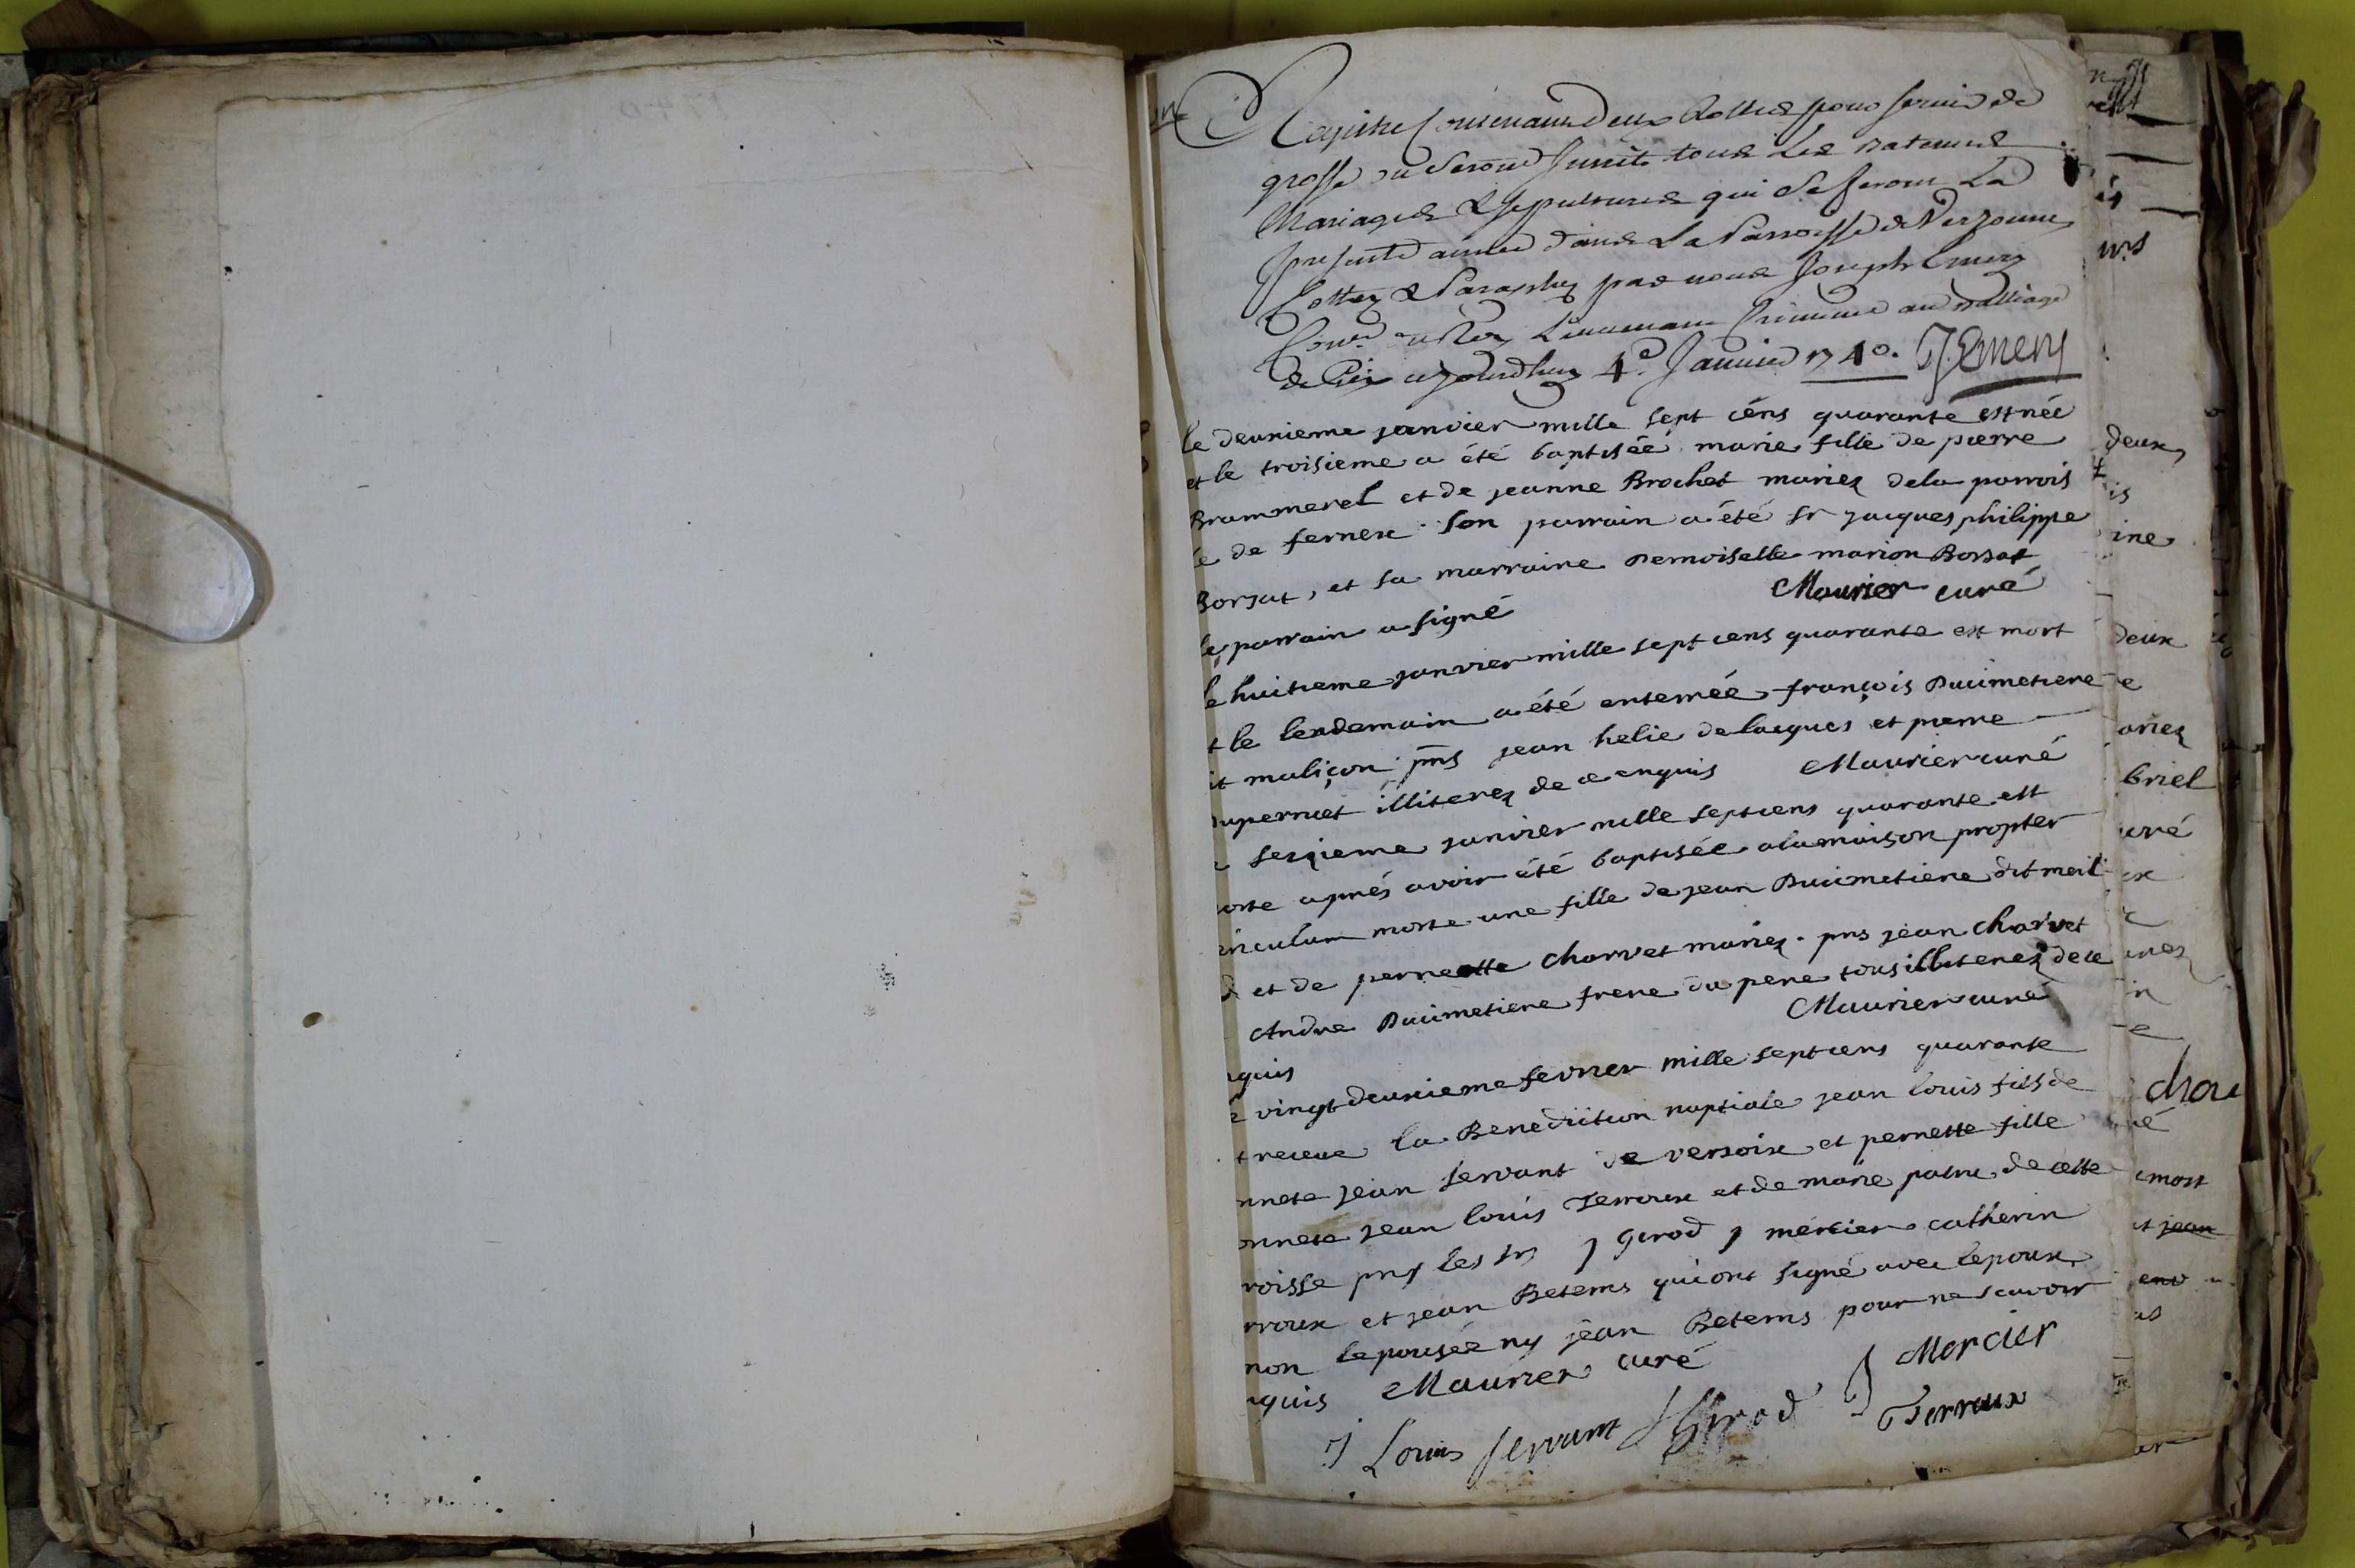 Registre Contenant deux Rolles pour servir de
grosse ou seront Inscrits tous Les Batemes
Mariages & sepultures qui se feront La
presente année dans La Parroisse de Versonnex
Cottez & Paraphez par nous Joseph Emery
Coner du Roy Lieutenant Criminel au Balliage
de Gex cejourdhuy 4e Janvier 1740. JEmery
le deuxieme janvier mille sept cens quarante est née
et le troisieme a été baptisée marie fille de pierre
Brammerel et de jeanne Brochet mariez dela parrois
se de fernex. Son parrain a été sr jacques philippe
Borsat, et sa marraine Demoiselle marion Borsat
le parrain a signé Maurier curé
le huitieme janvier mille sept cens quarante est mort
t le lendemain a été enterrée françois Ducimetiere
it maliçon. pns jean helie delacques et pierre
Dupernet illiterez de ce enquis Maurier curé
e sezieme janvier mille septcens quarante est
orte aprés avoir été baptisée alamaison propter
ericulum morte une fille de jean Ducimetiere dit meil
d et de pernette Charvet mariez. pns jean charvet
Andre Ducimetiere frere du pere tous illiterez de ce
nquis Maurier curé
e vingtdeuxieme fevrier mille septcens quarante
t receue la Benediction nuptiale jean louis fils de
nnete jean servant de versoix et pernette fille
onnete jean louis Terroux et de marie patru de cette
roisse pns les srs j Girod j mércier catherin
rroux et jean Betems qui ont signé avec lepoux
non lepousée ny jean Betems pour ne scavoir
nquis Maurier curé
J Mercier
J Louis servant JGirod Terroux
deux
is
ine
deux
e
ariez
briel
uré
ex
in
e
chou
é
mort
et jean
us